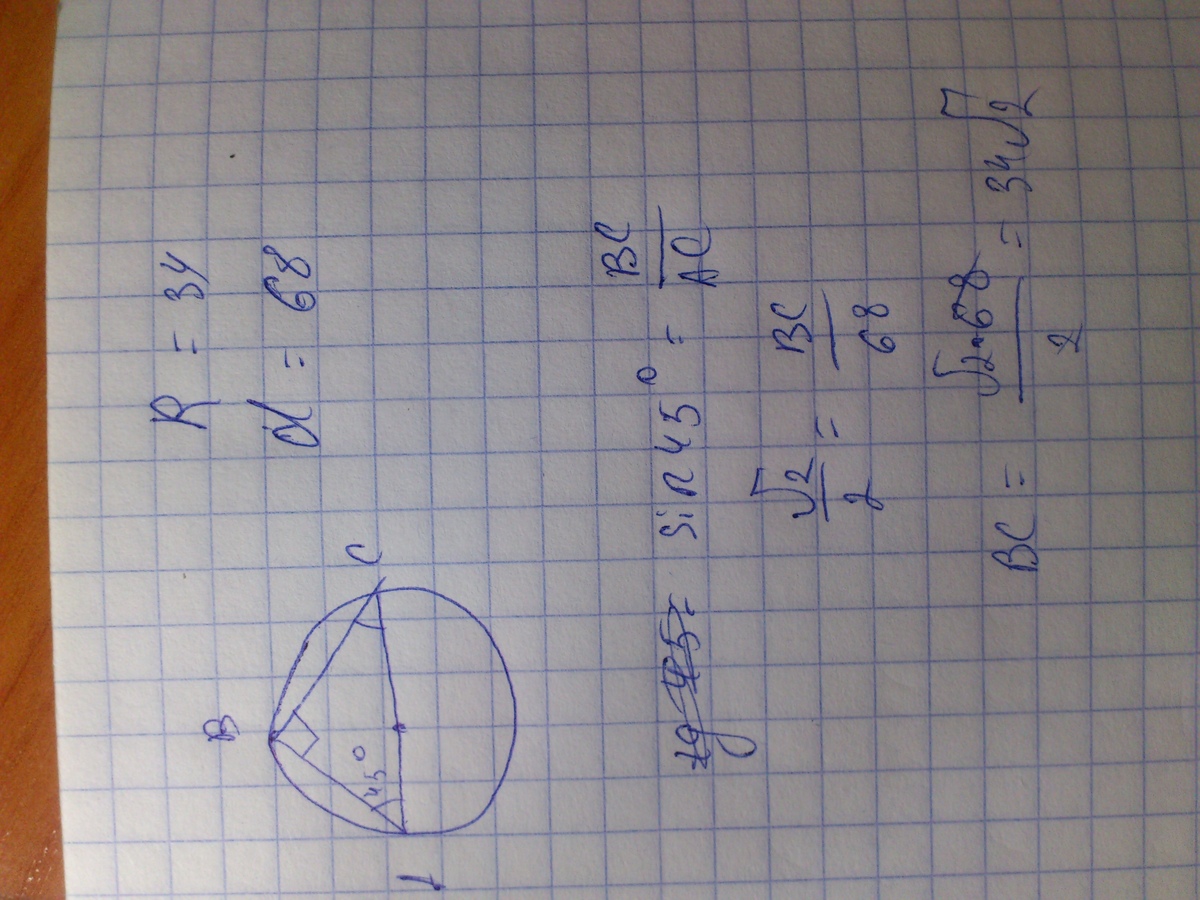 R = 34
d = 68
B
45°
C
A
tg 45 = sin 45° = BC/AC
√2/2 = BC/68
BC = √2·68/2 = 34√2